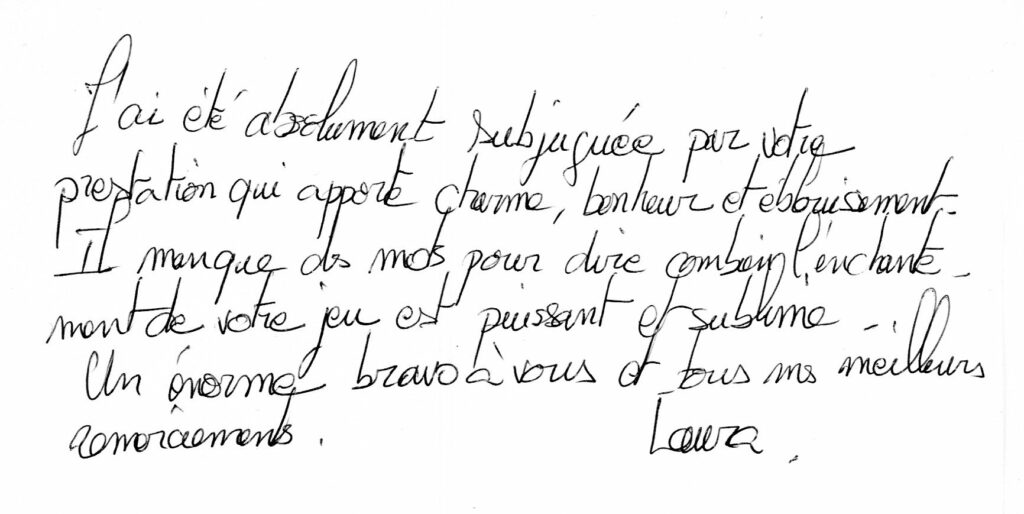 J'ai été absolument subjuguée par votre
prestation qui apporte charme, bonheur et éblouissement.
Il manque des mots pour dire combien l'enchante-
ment de votre jeu est puissant et sublime...
Un énorme bravo à vous et tous mes meilleurs
remerciements.
Laura.